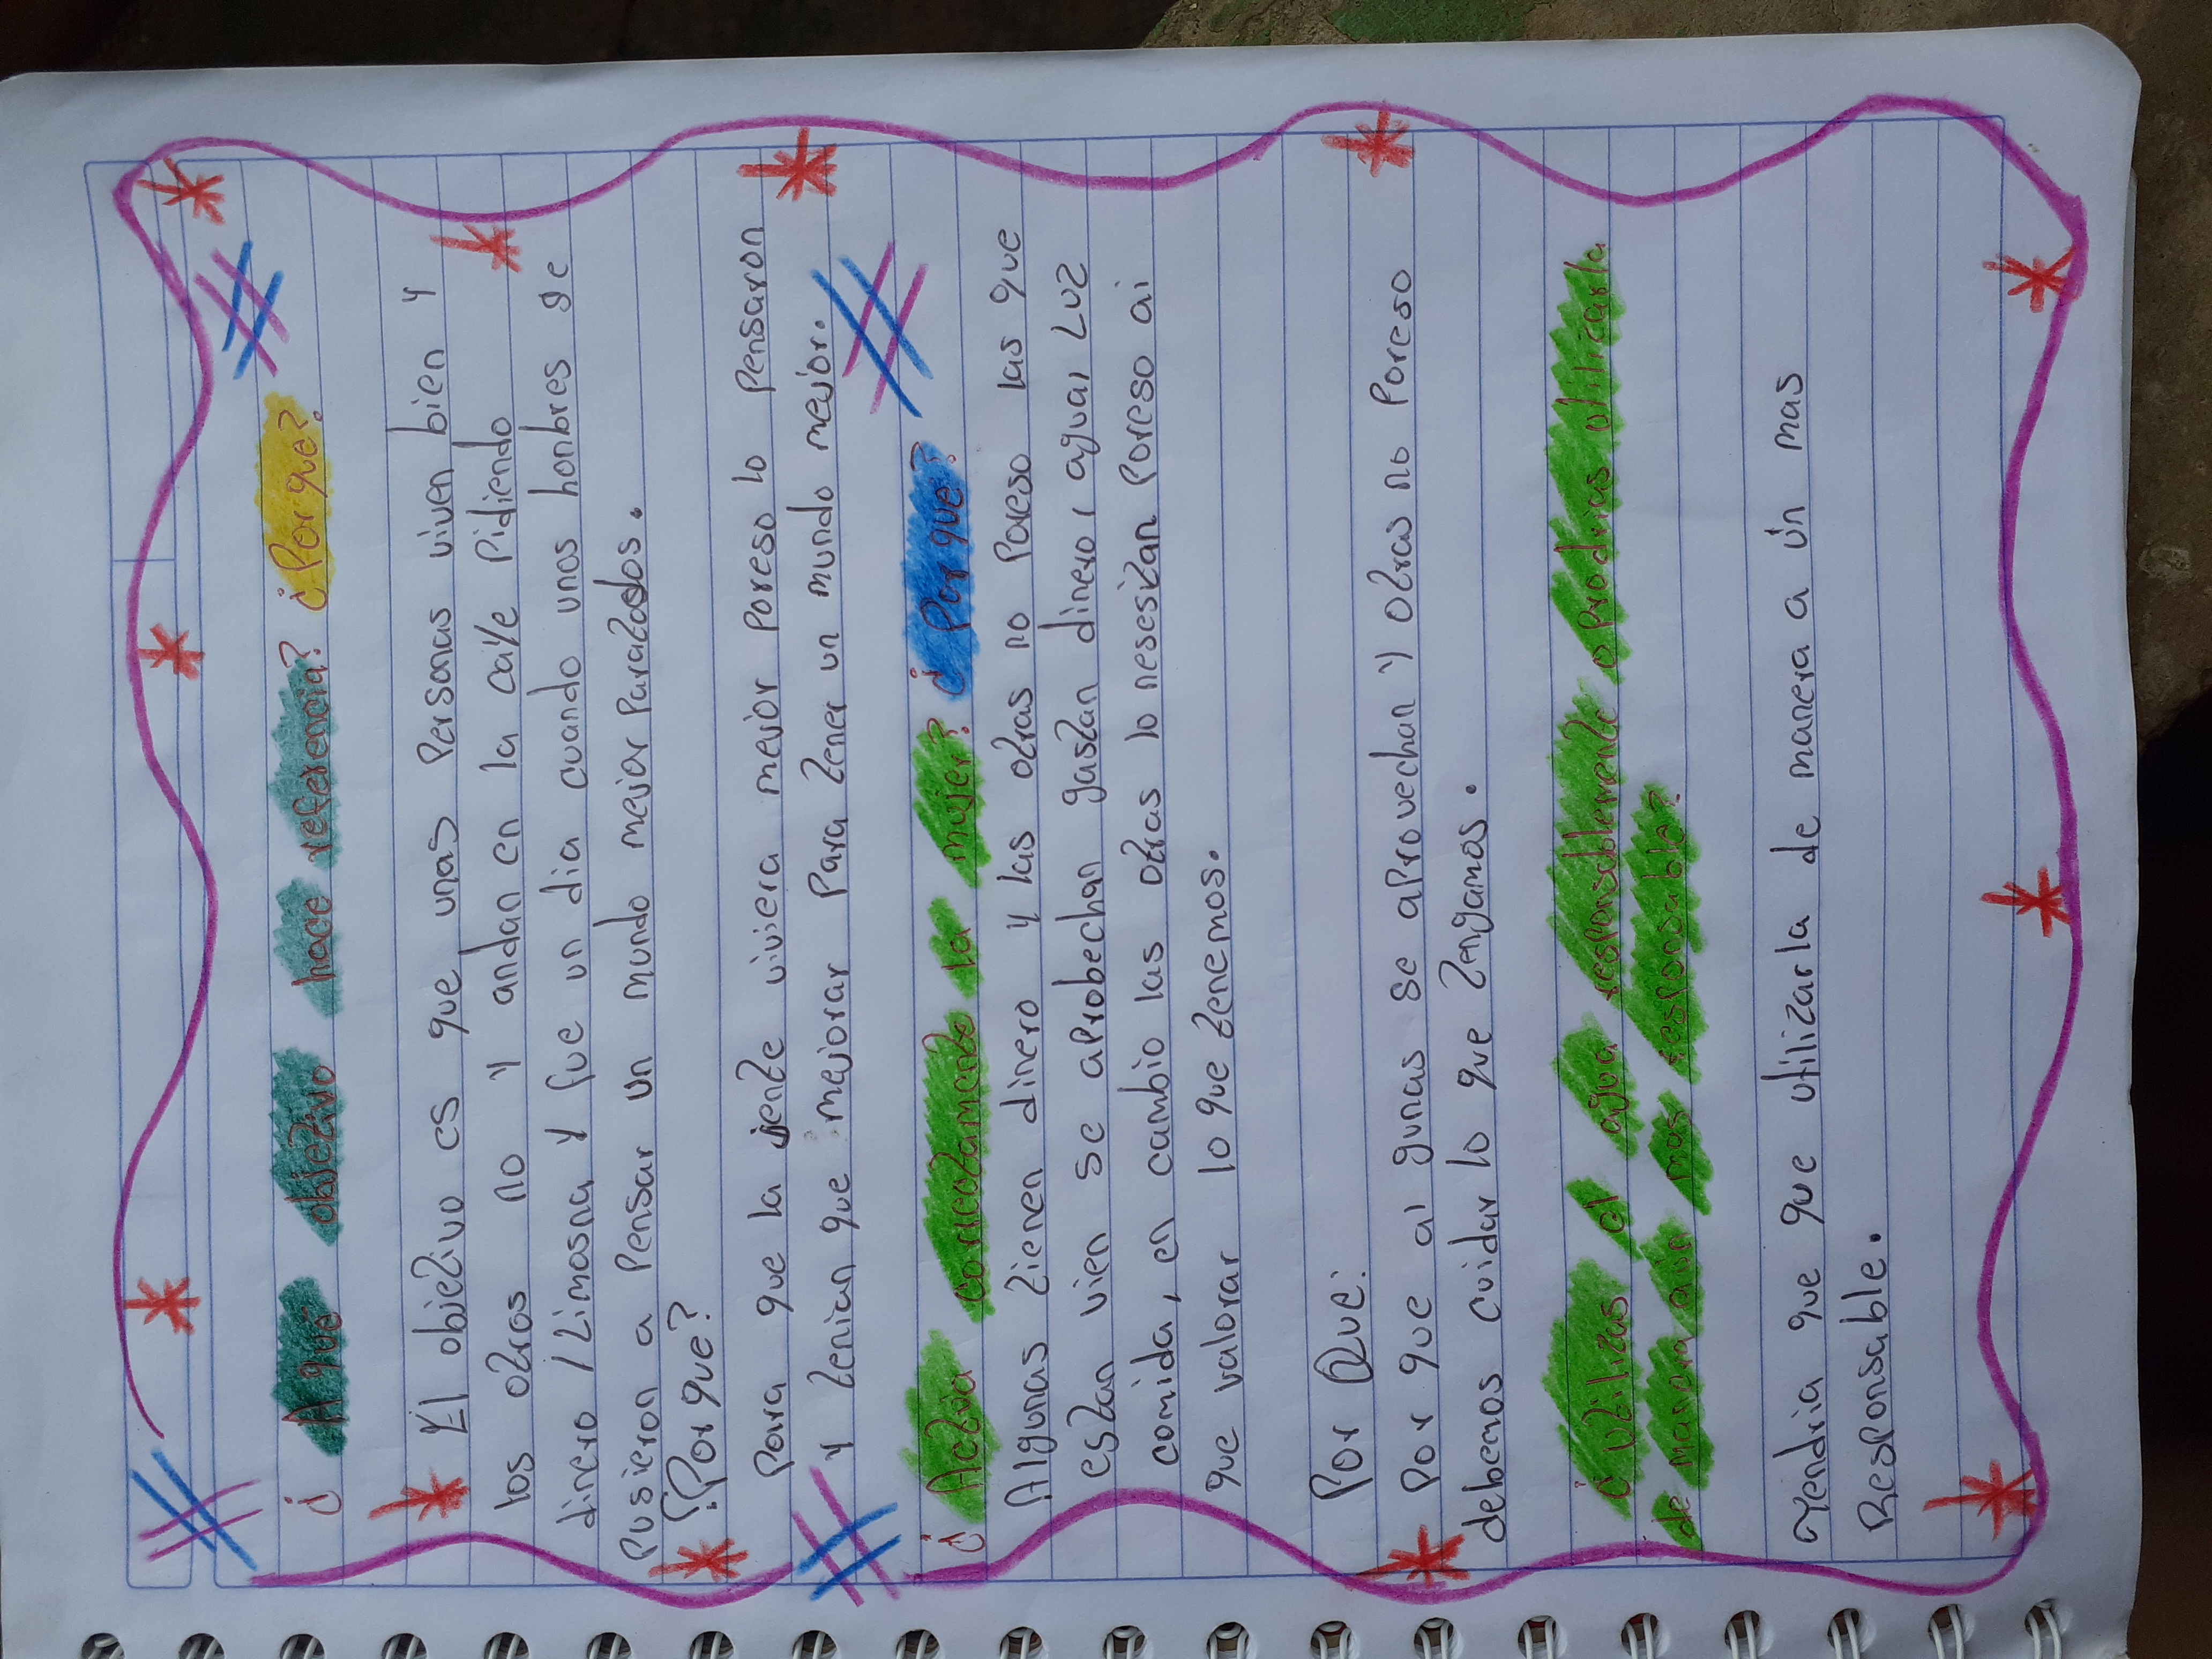 ¿A que objetivo hace referencia? ¿Por que?
El objetivo es que unas personas viven bien y
los otros no y andan en la calle pidiendo
dinero / Limosna y fue un dia cuando unos honbres se
Pusieron a Pensar un mundo mejor para todos.
¿Por que?
Para que la jente viviera mejor poreso lo pensaron
y tenian que mejorar Para tener un mundo mejor.
¿Actua correctamente la mujer? ¿Por que?
Algunas tienen dinero y las otras no Poreso las que
estan vien se aprobechan gastan dinero, agua, Luz
comida, en cambio las otras lo nesesitan Poreso ai
que valorar lo que tenemos.
Por Que:
Por que al gunas se aprovechan y otras no Poreso
debemos cuidar lo que tengamos.
¿Utilizas el agua responsablemente o podrias utilizarla
de manera aún mas responsable?
Tendria que que utilizarla de manera a ún mas
Responsable.